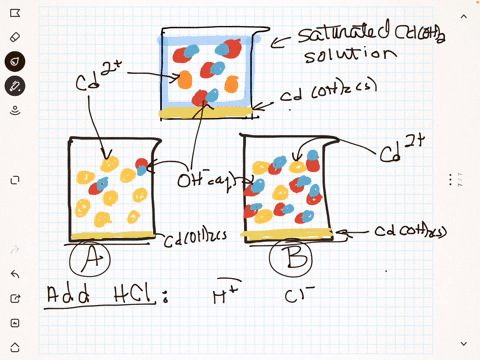 saturated Cd(OH)2
solution
Cd2+
Cd(OH)2(s)
Cd2+
OH-(aq)
Cd(OH)2(s)
Cd(OH)2(s)
A
B
Add HCl: H+ Cl-